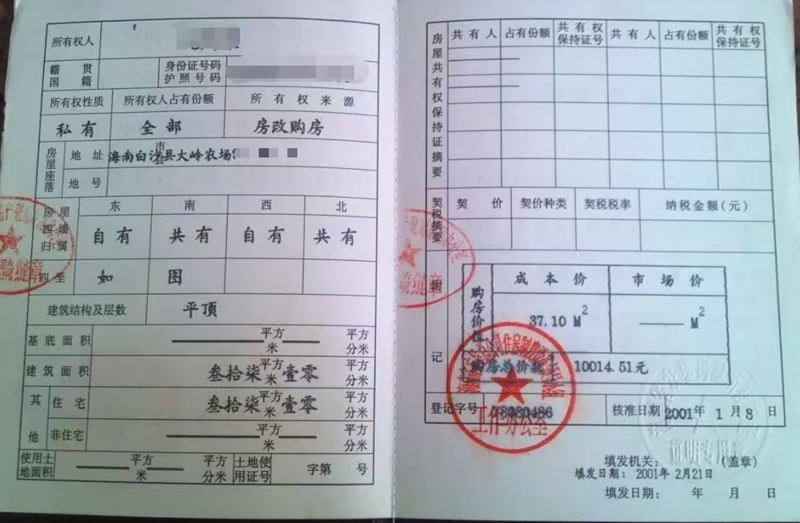 所有权人
籍贯
国籍
身份证号码
护照号码
所有权性质 所有权人占有份额 所有权来源
私有 全部 房改购房
房屋座落
地址 海南白沙县大岭农场
市
地号
房屋四墙归属 东 南 西 北
自有 共有 自有 共有
四至 如 图
建筑结构及层数 平顶
基底面积 平方米 平方分米
建筑面积 叁拾柒平方米壹零平方分米
其他
住宅 叁拾柒平方米壹零平方分米
非住宅 平方米 平方分米
使用土地面积 平方米 平方分米 土地使用证号 字第 号
房屋共有权保持证摘要
共有人 占有份额 共有权保持证号 共有人 占有份额 共有权保持证号
契税摘要
契价 契价种类 契税税率 纳税金额(元)
附记
购房价值
成本价 市场价
37.10 M² —— M²
购房总价款 10014.51元
登记字号 核准日期 2001年 1月 8日
工作办公室
骑缝章
骑缝章
证明专用章
填发机关: (盖章)
填发日期: 2001年 2月21日
填发日期: 年 月 日